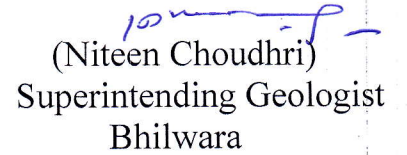 (Niteen Choudhri)
Superintending Geologist
Bhilwara